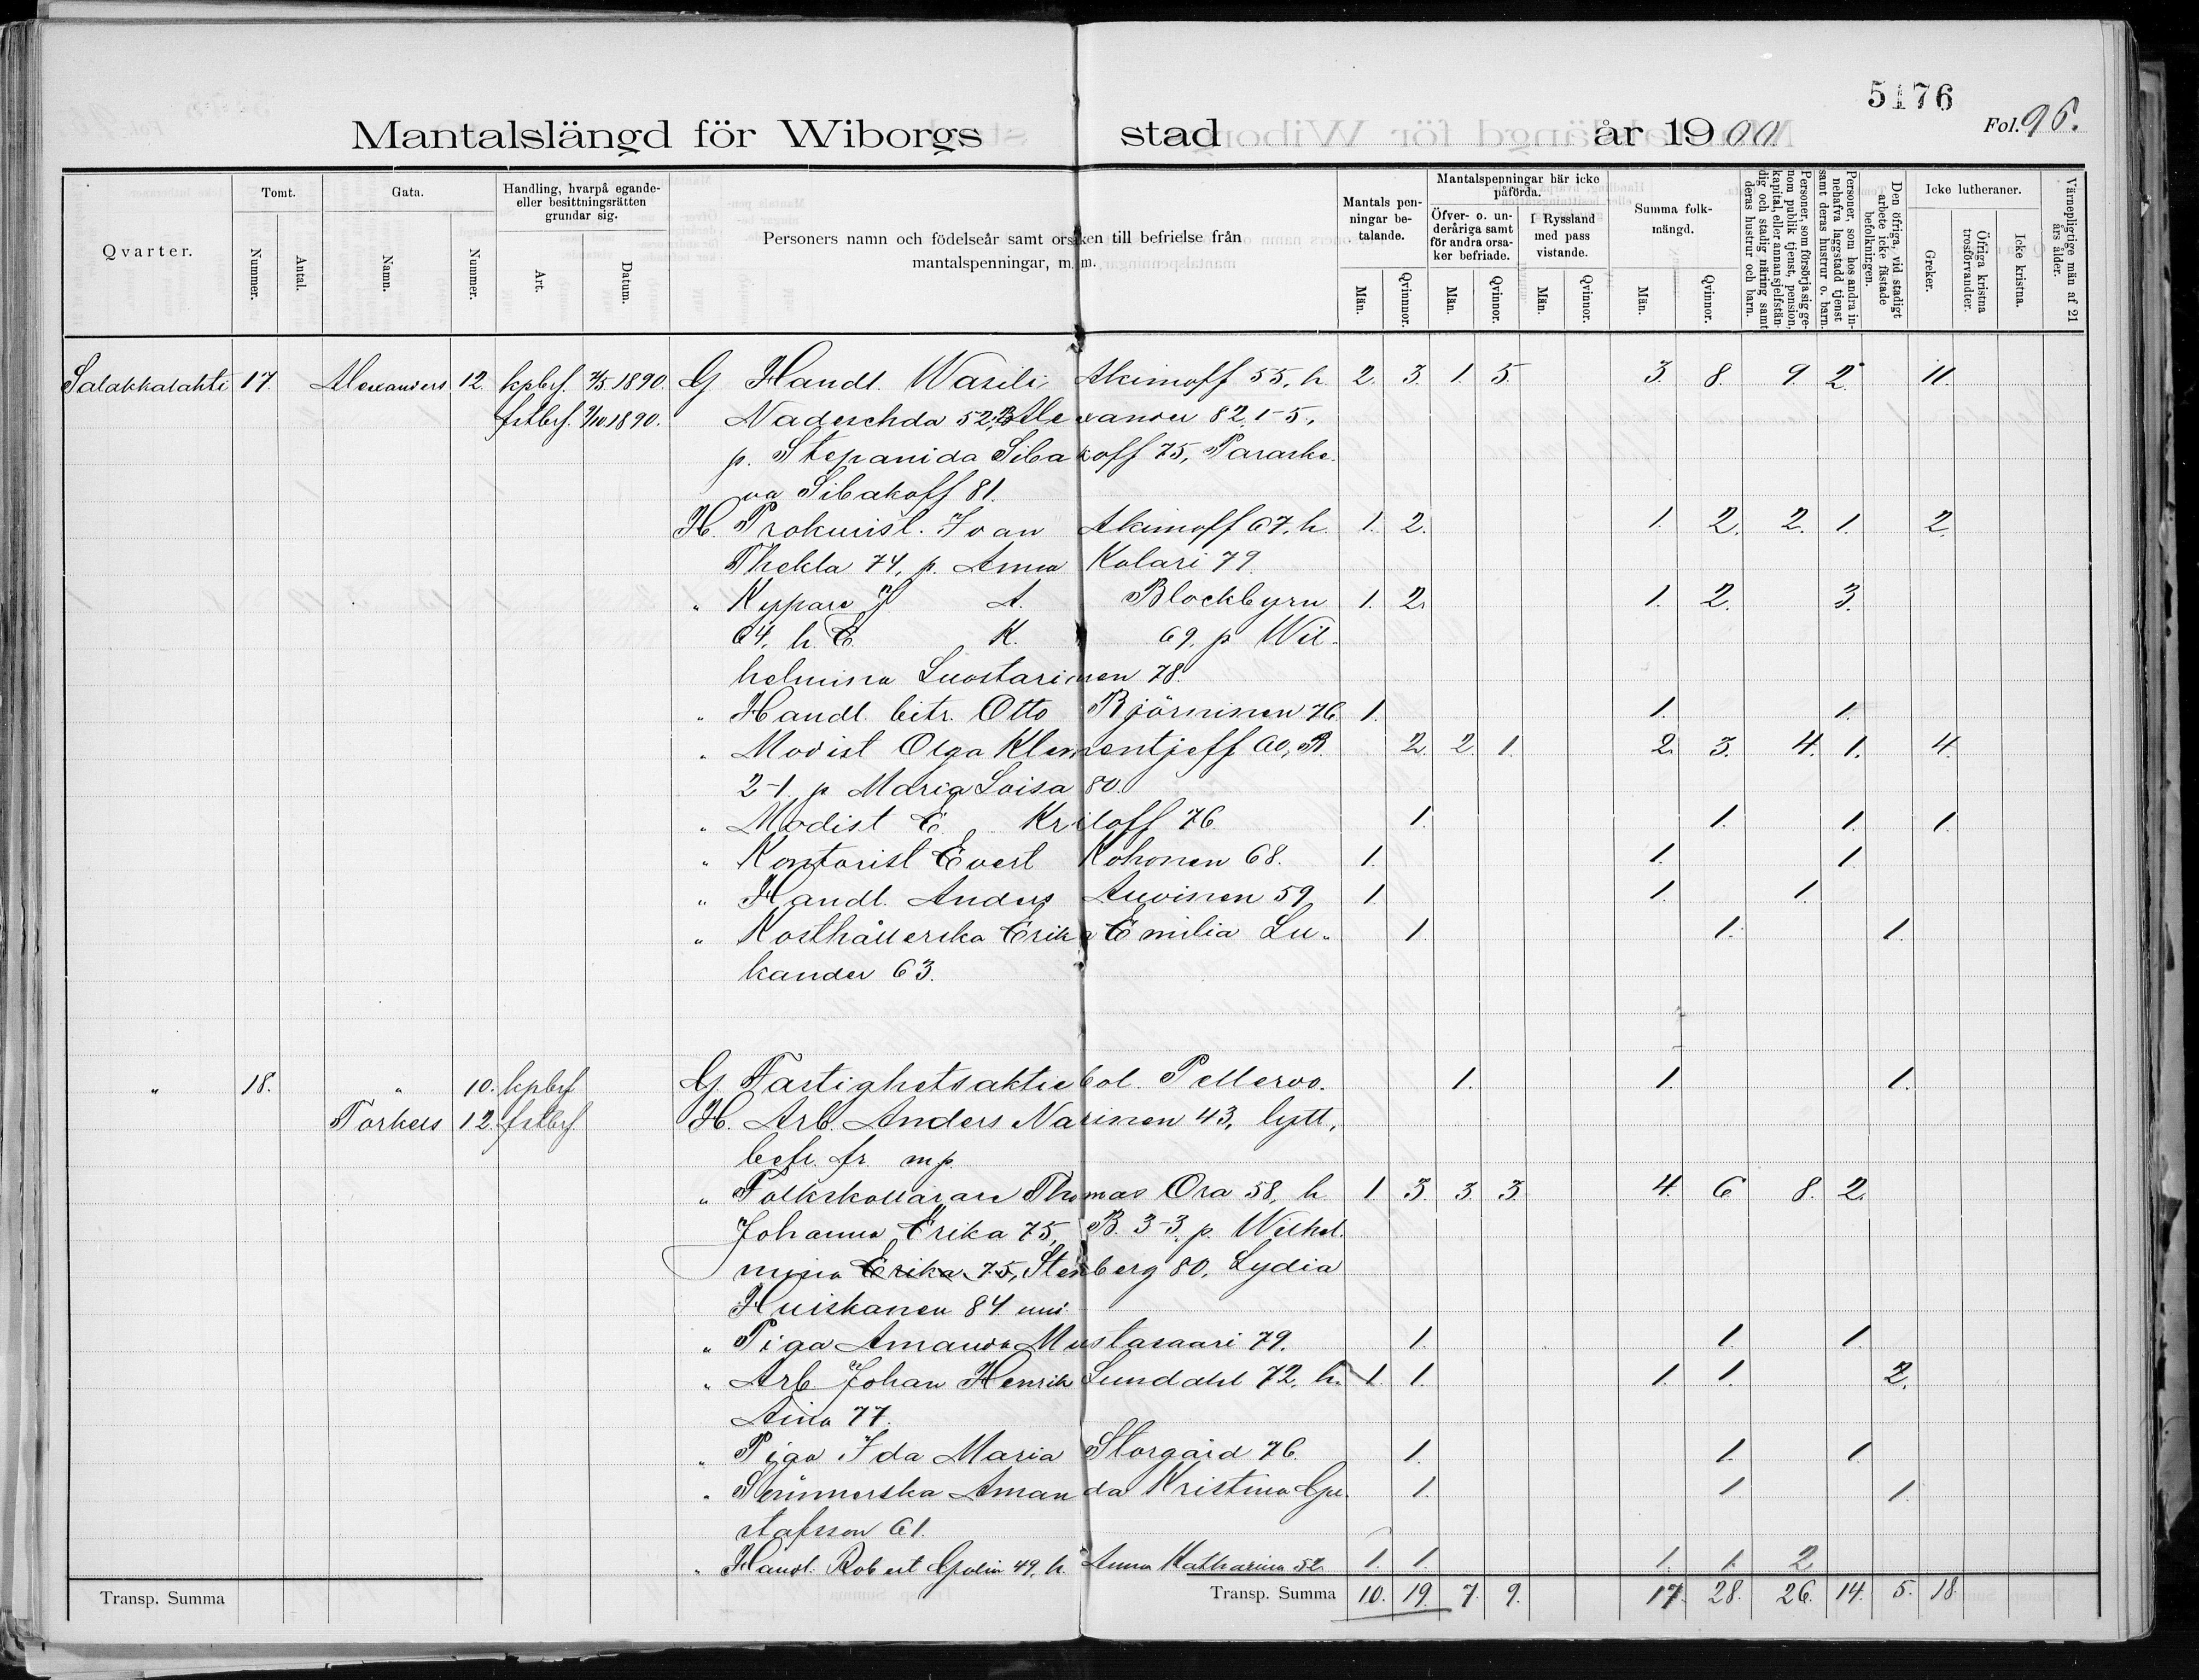 5176
Mantalslängd för Wiborgs stad år 1900. Fol. 96.
Qvarter.
Tomt.
Nummer.
Antal.
Gata.
Namn.
Nummer.
Handling, hvarpå egande- eller besittningsrätten grundar sig.
Art.
Datum.
Personers namn och födelseår samt orsaken till befrielse från mantalspenningar, m. m.
Mantals penningar betalande.
Män.
Qvinnor.
Mantalspenningar här icke påförda.
Öfver- o. underåriga samt för andra orsaker befriade.
Män.
Qvinnor.
I Ryssland med pass vistande.
Män.
Qvinnor.
Summa folkmängd.
Män.
Qvinnor.
Personer, som försörja sig genom publik tjenst, pension, kapital, eller annan sjelfständig och stadig näring samt deras hustrur och barn.
Personer, som hos andra innehafva laggstadd tjenst samt deras hustrur o. barn.
Den öfriga, vid stadigt arbete icke fästade befolkningen.
Icke lutheraner.
Greker.
Öfriga kristna trosförvandter.
Icke kristna.
Värnepligtige män af 21 års ålder.
Salakkalahti 17. Alexanders 12. kpbrf. 7/5 1890. G Handl. Wasili Akimoff 55, h. 2. 3. 1. 5. 3. 8. 9. 2. 11.
fstbrf. 7/10 1890. Nadeschda 52, B Alexander 82, 1-5,
p. Stepanida Sibakoff 75, Paraske-
va Sibakoff 81.
H. Prokurist. Ivan Akimoff 67, h. 1. 2. 1. 2. 2. 1. 2.
Thekla 74, p. Anna Kolari 79.
" Kypare J A. Blockbyrn 1. 2. 1. 2. 3.
64, h. E. K. 69, p Wil-
helmina Luostarinen 78.
" Handl. bitr. Otto Björninen 76. 1. 1. 1.
" Modist Olga Klementjeff 60, B. 2. 2. 1. 2. 3. 4. 1. 4.
2-1. p Maria Loisa 80.
" Modist E. Kriloff 76. 1. 1. 1. 1.
" Kontorist Evert Kohonen 68. 1. 1. 1.
" Handl. Anders Auvinen 59 1. 1. 1.
" Kosthållerska Erika Emilia Lu- 1. 1. 1.
kander 63.
" 18. " 10. kpbrf. G. Fastighetsaktiebol. Pellervo. 1. 1. 1.
Torkels 12. fstbrf. H. Arb. Anders Narinen 43, lytt,
befr. fr. mp.
" Folkskollärare Thomas Ora 58, h 1. 3. 3. 3. 4. 6 8. 2.
Johanna Erika 75, B. 3-3, p. Wilhel-
mina Erika 75, Stenberg 80, Lydia
Huiskanen 84.
" Piga Amanda Mustasaari 79. 1. 1. 1.
" Arb. Johan Henrik Lundahl 72, h. 1. 1. 1. 1. 2.
Aina 77.
" Piga Ida Maria Storgård 76. 1. 1. 1.
" Amanda Kristina Gu- 1. 1. 1.
stafsson 61.
" Handl. Robert 49, h. Anna Katharina 52. 1. 1. 1. 1. 2
Transp. Summa Transp. Summa 10. 19. 7. 9. 17. 28. 26. 14. 5. 18.